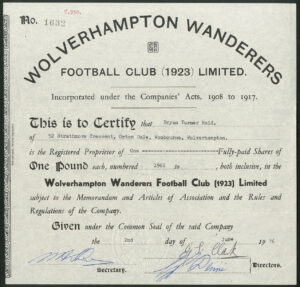 T.350.
No. 1632
WOLVERHAMPTON WANDERERS
FOOTBALL CLUB (1923) LIMITED.
Incorporated under the Companies' Acts, 1908 to 1917.
This is to Certify that Bryan Turner Reid,
of 52 Strathmore Crescent, Orton Dale, Wombourne, Wolverhampton,
is the Registered Proprietor of One Fully-paid Shares of
One Pound each, numbered 1962 to , both inclusive, in the
Wolverhampton Wanderers Football Club (1923) Limited
subject to the Memorandum and Articles of Association and the Rules and
Regulations of the Company.
Given under the Common Seal of the said Company
the 2nd day of June 19
Secretary.
Directors.